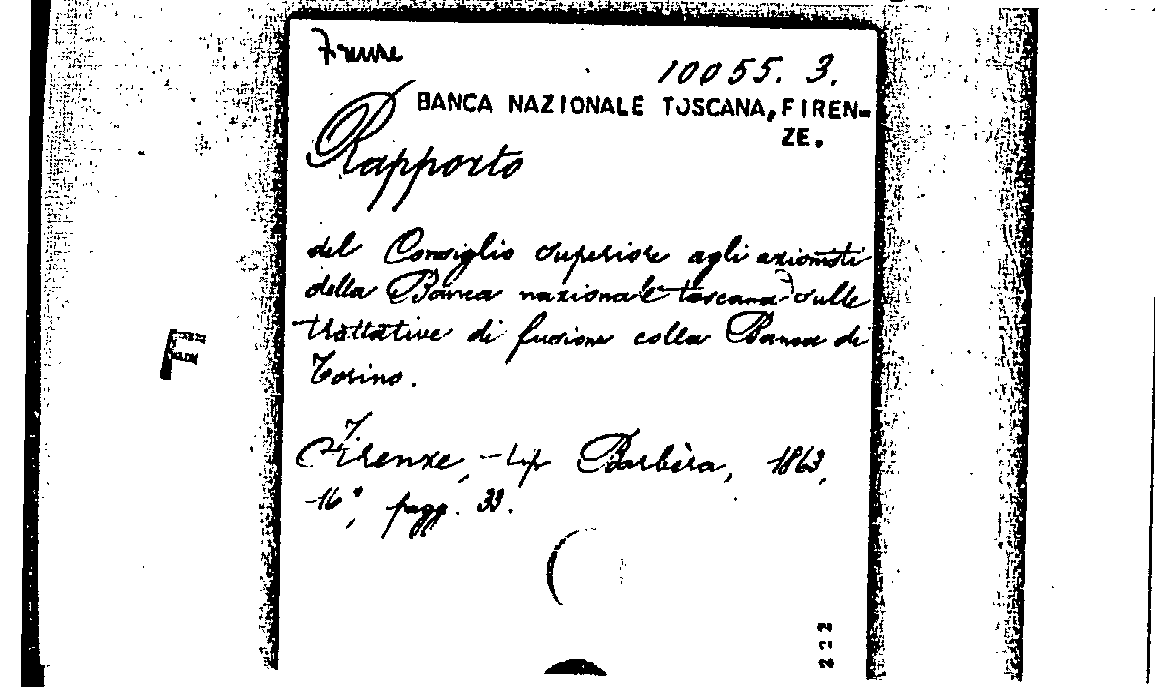 Firenze
10055. 3.
BANCA NAZIONALE TOSCANA, FIREN-
ZE.
Rapporto
del Consiglio superiore agli azionisti
della Banca nazionale toscana sulle
trattative di fusione colla Banca di
Torino.
Firenze, tip Barbèra, 1863,
16°, pagg. 33.
F
222